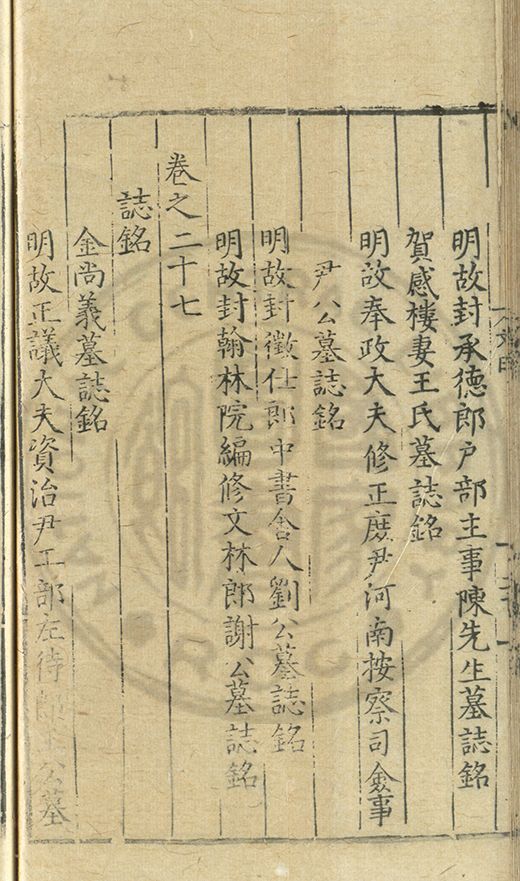 明故封承德郎户部主事陳先生墓誌銘
賀感樓妻王氏墓誌銘
明故奉政大夫修正庶尹河南按察司僉事
尹公墓誌銘
明故封徵仕郎中書舍人劉公墓誌銘
明故封翰林院編修文林郎謝公墓誌銘
卷之二十七
誌銘
金尚義墓誌銘
明故正議大夫資治尹工部左侍郎公墓